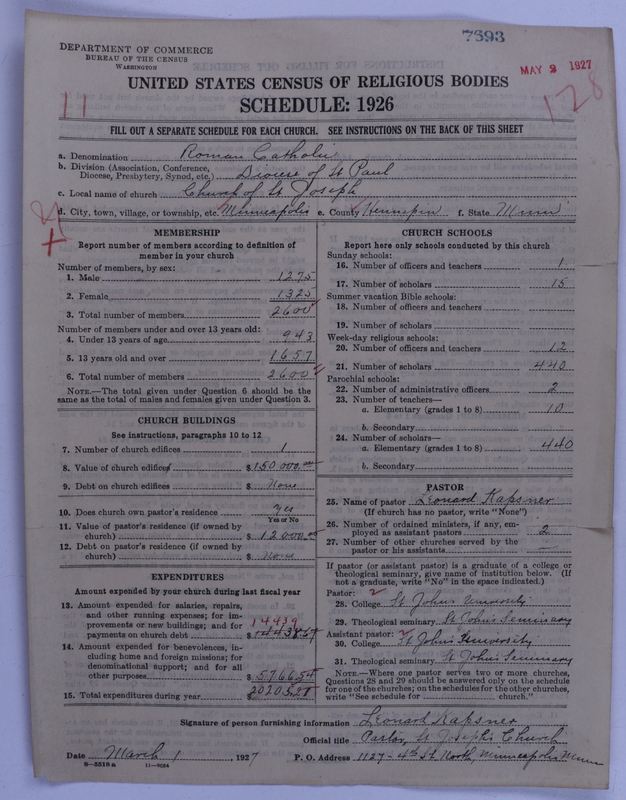 7693
DEPARTMENT OF COMMERCE
BUREAU OF THE CENSUS
WASHINGTON
MAY 2 1927
UNITED STATES CENSUS OF RELIGIOUS BODIES
SCHEDULE: 1926
11
128
FILL OUT A SEPARATE SCHEDULE FOR EACH CHURCH. SEE INSTRUCTIONS ON THE BACK OF THIS SHEET
a. Denomination Roman Catholic
b. Division (Association, Conference,
Diocese, Presbytery, Synod, etc.) Diocese of St Paul
c. Local name of church Church of St Joseph
d. City, town, village, or township, etc. Minneapolis e. County Hennepin f. State Minn
MEMBERSHIP
Report number of members according to definition of
member in your church
Number of members, by sex:
1. Male 1275
2. Female 1325
3. Total number of members 2600
Number of members under and over 13 years old:
4. Under 13 years of age 943
5. 13 years old and over 1657
6. Total number of members 2600
NOTE.—The total given under Question 6 should be the
same as the total of males and females given under Question 3.
CHURCH BUILDINGS
See instructions, paragraphs 10 to 12
7. Number of church edifices 1
8. Value of church edifices $ 150.000.00
9. Debt on church edifices $ None
10. Does church own pastor's residence Yes
Yes or No
11. Value of pastor's residence (if owned by
church) $ 12000.00
12. Debt on pastor's residence (if owned by
church) $ None
EXPENDITURES
Amount expended by your church during last fiscal year
13. Amount expended for salaries, repairs,
and other running expenses; for im-
provements or new buildings; and for
14439
payments on church debt $
14. Amount expended for benevolences, in-
cluding home and foreign missions; for
denominational support; and for all
other purposes $ 5766.54
15. Total expenditures during year 20205.21
CHURCH SCHOOLS
Report here only schools conducted by this church
Sunday schools:
16. Number of officers and teachers 1
17. Number of scholars 15
Summer vacation Bible schools:
18. Number of officers and teachers
19. Number of scholars
Week-day religious schools:
20. Number of officers and teachers 12
21. Number of scholars 440
Parochial schools:
22. Number of administrative officers 2
23. Number of teachers—
a. Elementary (grades 1 to 8) 10
b. Secondary
24. Number of scholars—
a. Elementary (grades 1 to 8) 440
b. Secondary
PASTOR
25. Name of pastor Leonard Kapsner
(If church has no pastor, write "None")
26. Number of ordained ministers, if any, em-
ployed as assistant pastors 2
27. Number of other churches served by the
pastor or his assistants —
If pastor (or assistant pastor) is a graduate of a college or
theological seminary, give name of institution below. (If
not a graduate, write "No" in the space indicated.)
Pastor:
28. College St Johns University
29. Theological seminary St Johns Seminary
Assistant pastor:
30. College St Johns University
31. Theological seminary St Johns Seminary
NOTE.—Where one pastor serves two or more churches,
Questions 28 and 29 should be answered only on the schedule
for one of the churches; on the schedules for the other churches,
write "See schedule for church."
Signature of person furnishing information Leonard Kapsner
Official title Pastor, St Joseph's Church
Date March 1, 1927 P. O. Address 1127 - 4th St North, Minneapolis Minn
8-5518a 11-9024